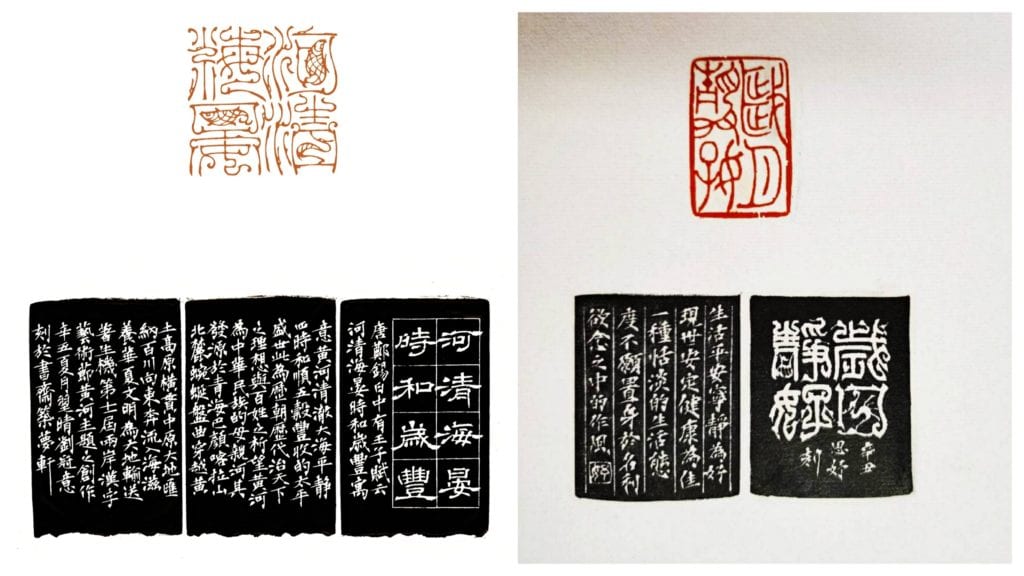 河清
海晏
河清海晏
時和歲豐
唐鄭錫日中有王子賦云
河清海晏時和歲豐寓
意黃河清澈大海平靜
四時和順五穀豐收的太平
盛世此為歷朝歷代治天下
之理想與百姓之祈望黃河
為中華民族的母親河其
發源於青海巴顏喀拉山
北麓蜿蜒盤曲穿越黃
土高原橫貫中原大地匯
納百川向東奔流入海滋
養華夏文明為大地輸送
着生機第屆兩岸漢字
藝術節黃河主題之創作
年五夏月望晴劉意
刻於書齋築夢軒
歲月
靜好
歲月
靜好
辛丑
思妤
刻
生活平安寧靜為好
現世安定健康為佳
一種恬淡的生活態
度不願置身於名利
欲念之中的作風